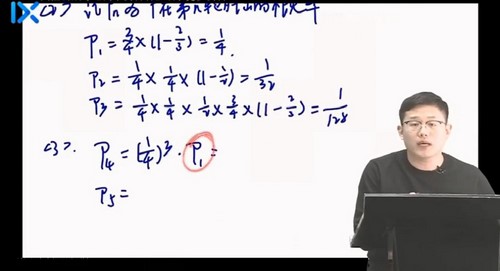 <2> 设Pn为 在第n轮
P₁ = 3/4 × (1 - 2/3) = 1/4.
P₂ = 1/4 × 1/4 × (1 - 1/2) = 1/32
P₃ = 1/4 × 1/4 × 1/2 × 3/4 × (1 - 2/3) = 1/128
<3>. P₄ = (1/4)³ · P₁ =
P₅ =